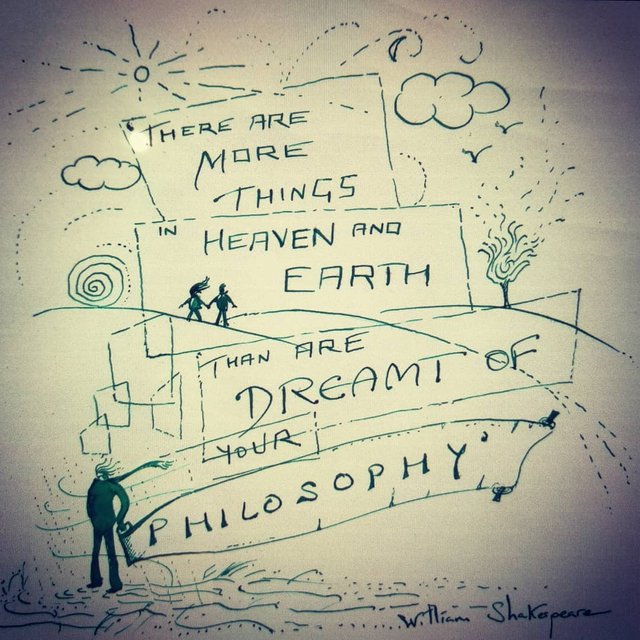 'THERE ARE
MORE
THINGS
IN HEAVEN AND
EARTH
THAN ARE
DREAMT OF
YOUR
PHILOSOPHY'
William Shakespeare